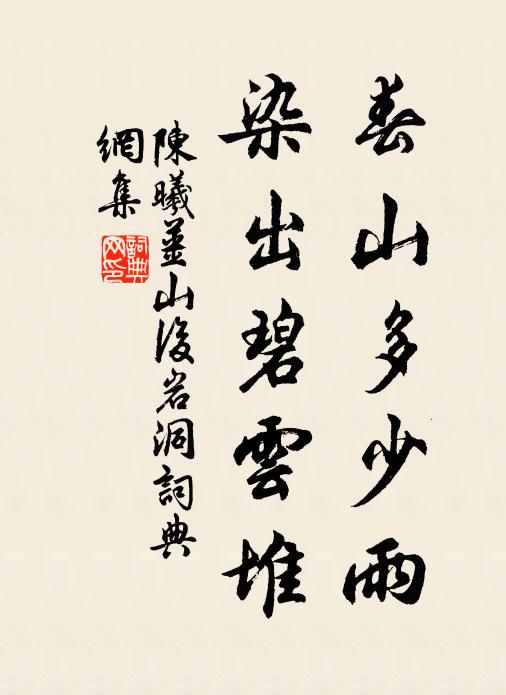 春山多少雨
染出碧雲堆
陳曦姜山後岩洞詞典
網集
詞典网印